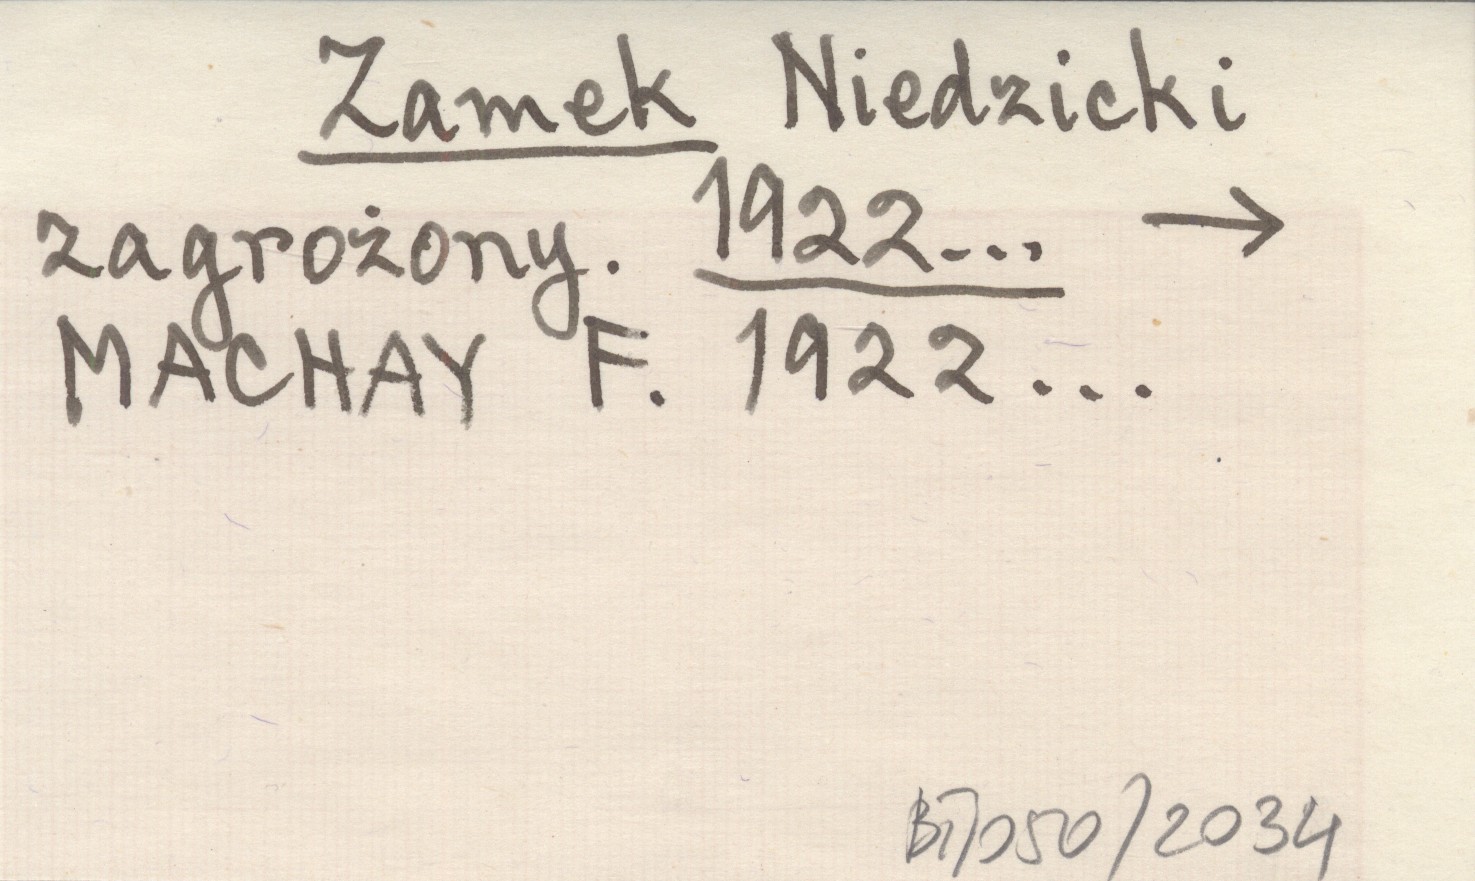 Zamek Niedzicki
zagrożony. 1922... →
MACHAY F. 1922...
BI/050/2034